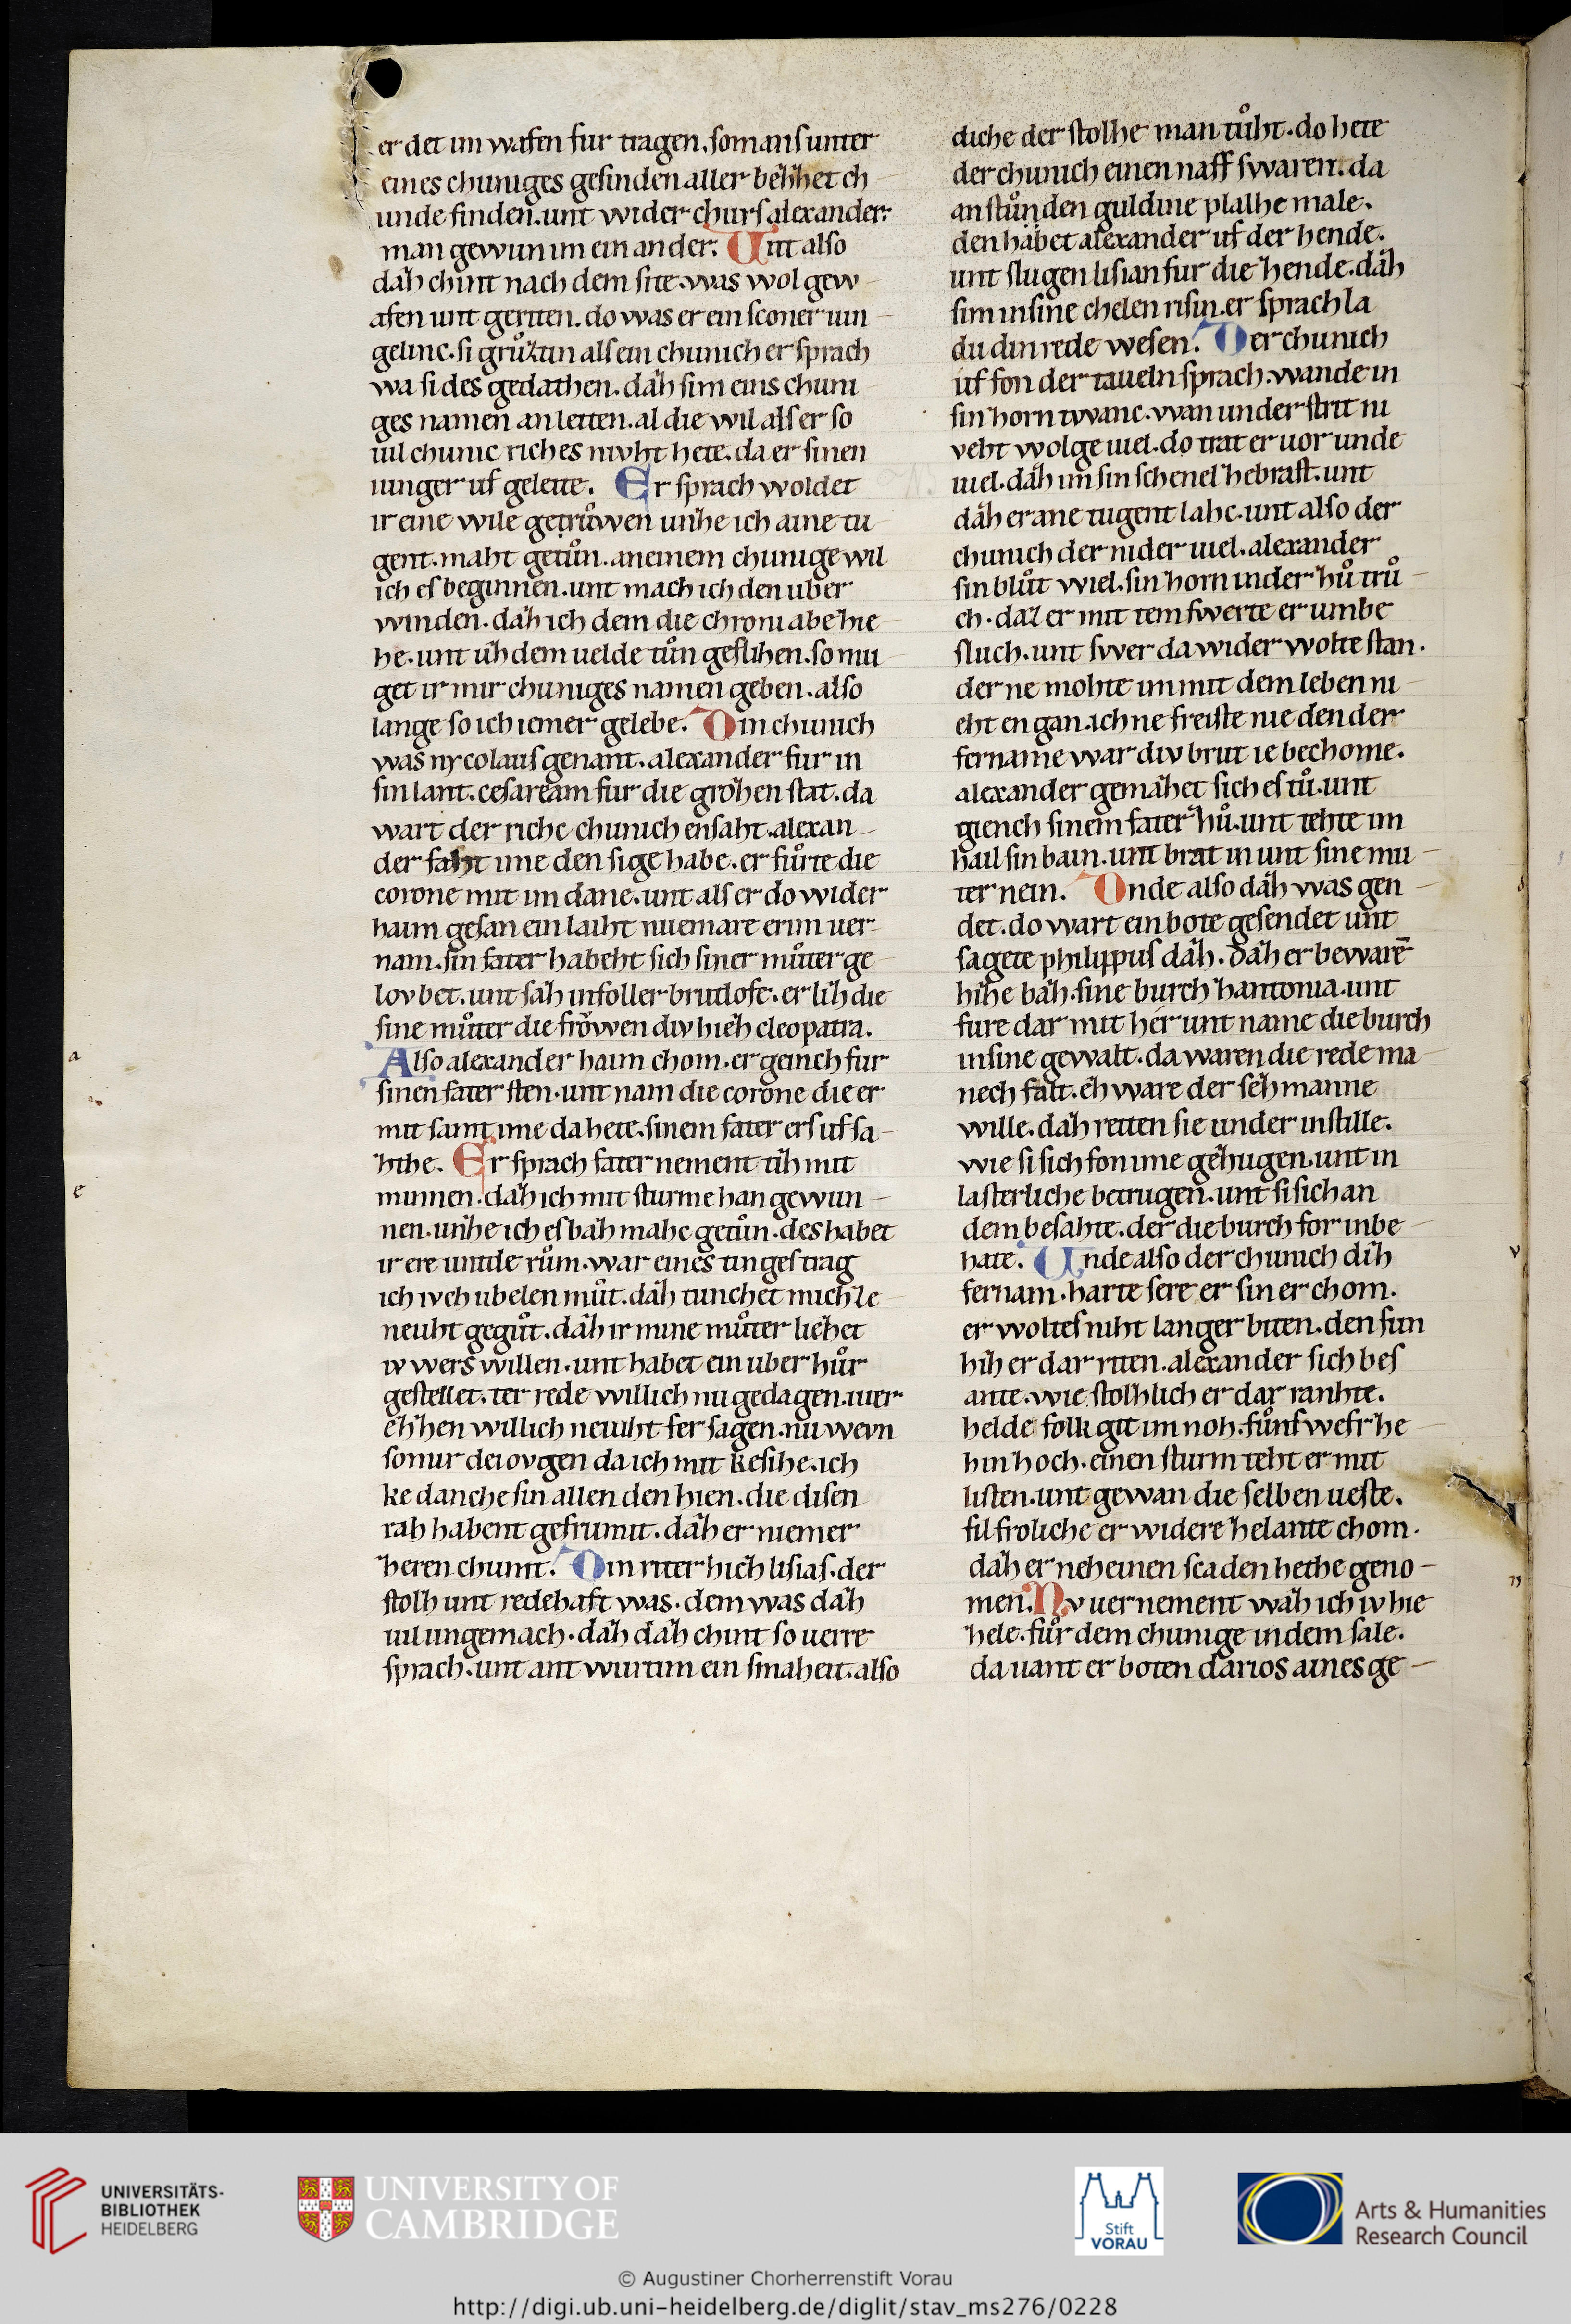 er det im wafen fur tragen. so man ſ unter
eines chuniges geſinden aller
unde finden. unt wider churſ alexander.
man gewun im ein ander. Unt alſo
däh chint nach dem ſite. was wol gew
afen unt geriten. do was er ein ſconer iun
gelinc. ſi grůztin alſ ein chunich er ſprach
wa ſi des gedathen. däh ſim eins chuni
ges namen an leiten. al die wil alſ er ſo
uil chunic riches nivht hete. da er ſinen
uinger uf geleite. Er ſprach woldet
ir eine wile getrůwen unhe ich aine tu
gent. maht getůn. an einem chunige wil
ich eſ beginnen. unt mach ich den uber
winden. däh ich dem die chroni abe hie
he. unt üh dem uelde tůn geſlihen. ſo mu
get ir mir chuniges namen geben. alſo
lange ſo ich iemer gelebe. Ein chunich
was nycolauſ genant. alexander fur in
ſin lant. ceſaream fur die grohen ſtat. da
wart der riche chunich enſaht. alexan
der faht ime den ſige habe. er fůrte die
corone mit im dane. unt alſ er do wider
haim geſan ein laiht niuemare er im uer
nam. ſin fater habeht ſich ſiner můter ge
lovbet. unt ſäh in foller brutlofe. er lih die
ſine můter die frowen div hieh cleopatra.
Alſo alexander haim chom. er geinch fur
ſinen fater ſten. unt nam die corone die er
mit ſamt ime da hete. ſinem fater erſ uf ſa
hthe. Er ſprach fater nement tih mit
minnen. däh ich mit ſturme han gewun
nen. unhe ich eſ bäh mahe getůn. des habet
ir ere untde rům. war eines tingeſ trag
ich ivch ubelen můt. däh tunchet mich le
neuht gegůt. däh ir mine můter liehet
iv wers willen. unt habet ein uber hůr
geſtellet. ter rede will ich nu gedagen. iuer
ehhen will ich neuiht fer ſagen. nu wevn
ſo mir dei ovgen da ich mit keſihe. ich
ke danche ſin allen den hien. die diſen
rah habent gefrumit. däh er niemer
heren chumt. Ein riter hieh liſiaſ. der
ſtolh unt redehaft was. dem was däh
uil ungemach. däh däh chint ſo uerre
ſprach. unt ant wurt im ein ſmaheit. alſo
diche der ſtolhe man tůht. do hete
der chunich einen naff ſwaren. da
an ſtůnden guldine plalhe male.
den häbet alexander uf der hende.
unt ſlugen liſian fur die hende. däh
ſim in ſine chelen riſin. er ſprach la
du din rede weſen. Der chunich
uf fon der taueln ſprach. wande in
ſin horn twanc. wan under ſtrit ni
veht wolge uiel. do trat er uor unde
uiel. däh im ſin ſchenel hebraſt. unt
däh er ane tugent lahc. unt alſo der
chunich der nider uiel. alexander
ſin blůt wiel. ſin horn in der hů trů
ch. daz er mit tem ſwerte er umbe
ſluch. unt ſwer da wider wolte ſtan.
der ne mohte im mit dem leben ni
eht en gan. ich ne freiſte nie den der
fername war div brut ie bechome.
alexander gemähet ſich eſ tů. unt
giench ſinem fater hů. unt tehte im
hail ſin bain. unt brat in unt ſine mu
ter nein. Unde alſo däh was gen
det. do wart ein bote geſendet unt
ſagete philippuſ däh. däh er bewarē
hihe bäh. ſine burch hantonia. unt
fure dar mit her unt name die burch
in ſine gewalt. da waren die rede ma
nech falt. eh ware der ſeh manne
wille. däh reiten ſie under in ſtille.
wie ſi ſich fon ime gehugen. unt in
laſterliche betrugen. unt ſi ſich an
dem beſahte. der die burch for in be
hate. Unde alſo der chunich dih
fernam. harte ſere er ſin er chom.
er wolteſ niht langer biten. den ſun
hih er dar riten. alexander ſich beſ
ante. wie ſtolhlich er dar ranhte.
helde folk git im noh. fůnf wefr he
hin hoch. einen ſturm teht er mit
liſten. unt gewan die ſelben ueſte.
fil froliche er widere helante chom.
däh er neheinen ſcaden hethe geno
men. Nv uernement wäh ich iv hie
hele. fůr dem chunige in dem ſale.
da uant er boten darios aines ge
a
e
v
n
UNIVERSITÄTS-
BIBLIOTHEK
HEIDELBERG
UNIVERSITY OF
CAMBRIDGE
Stift
VORAU
Arts & Humanities
Research Council
© Augustiner Chorherrenstift Vorau
http://digi.ub.uni-heidelberg.de/diglit/stav_ms276/0228